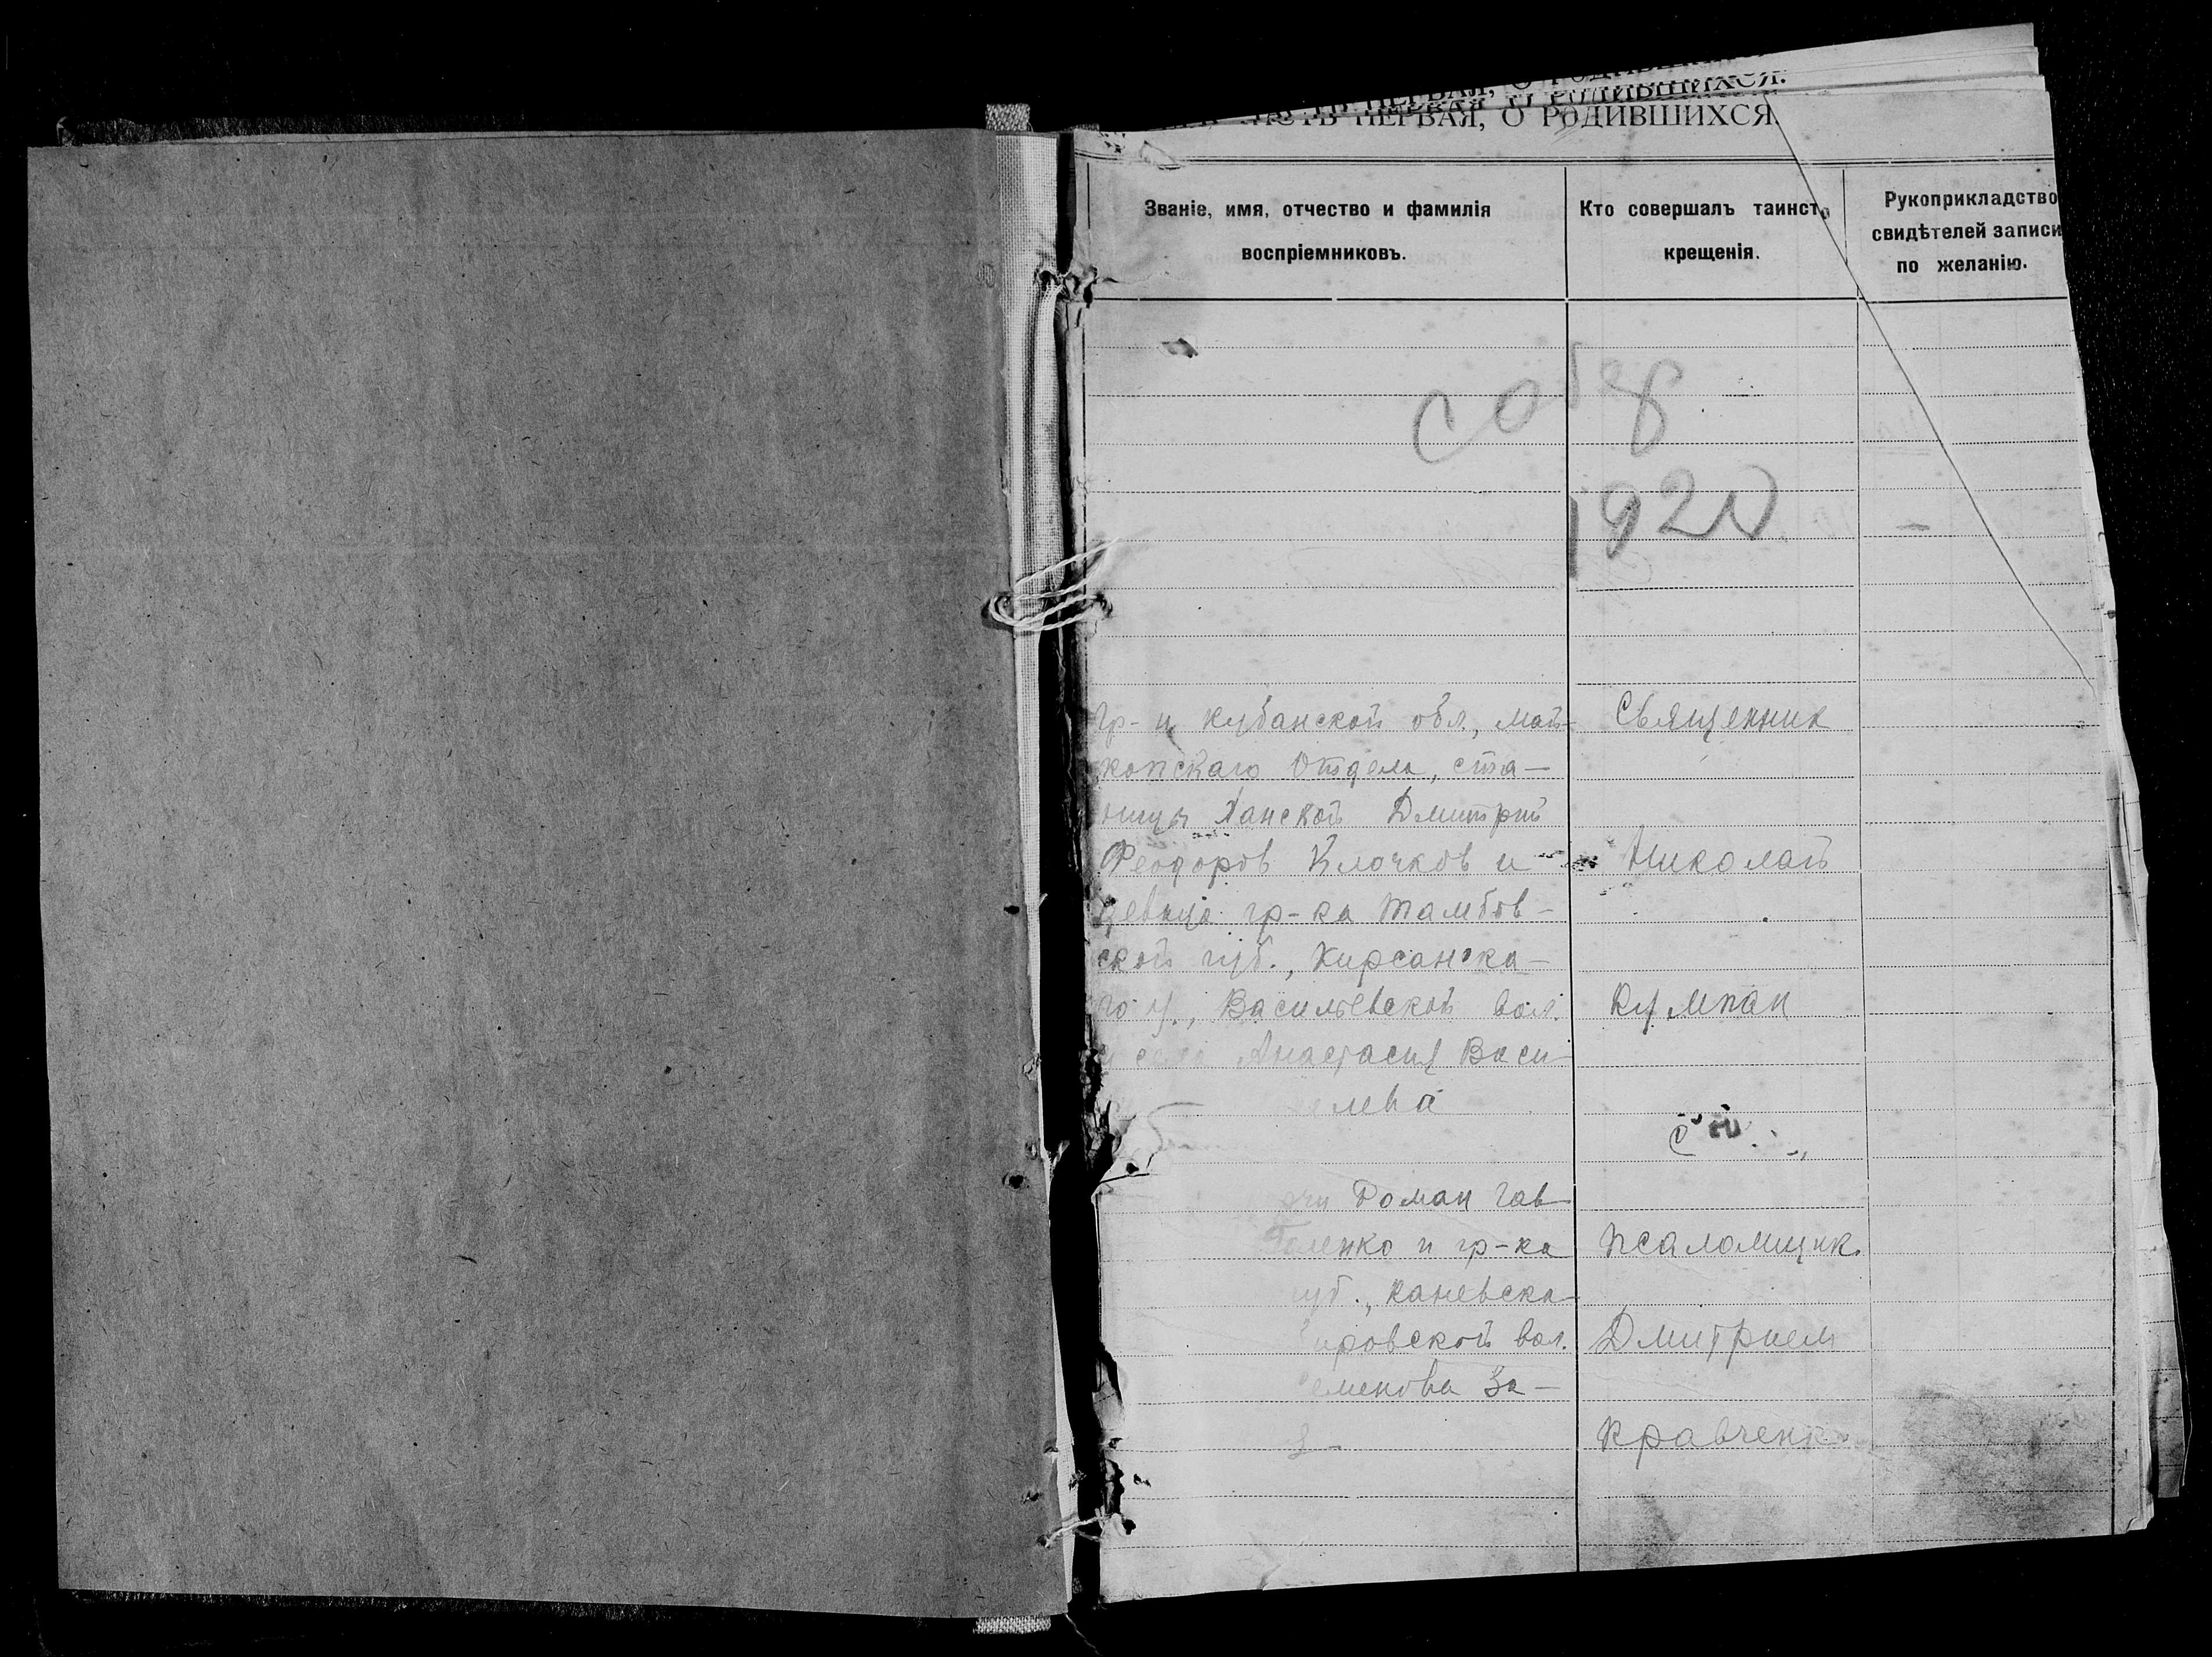 ЧАСТЬ ПЕРВАЯ, О РОДИВШИХСЯ.
Званіе, имя, отчество и фамилія
воспріемниковъ.
Кто совершалъ таинст
крещенія.
Рукоприкладство
свидѣтелей записи
по желанію.
1920
Гр-н Кубанской обл., Май-
копскаго Отдела, ста-
ницы Ханской Дмитрий
Феодоров Клочков и
девица гр-ка Тамбов-
ской губ., Кирсанска-
го у., Васильевской вол.
и села Анастасия Васи-
льева
Роман Гав-
ленко и гр-ка
губ., Каневска-
ировской вол.
еменова За-
Священник
Николай
Кумпан
с
Псаломщик.
Дмитрием
Кравченк